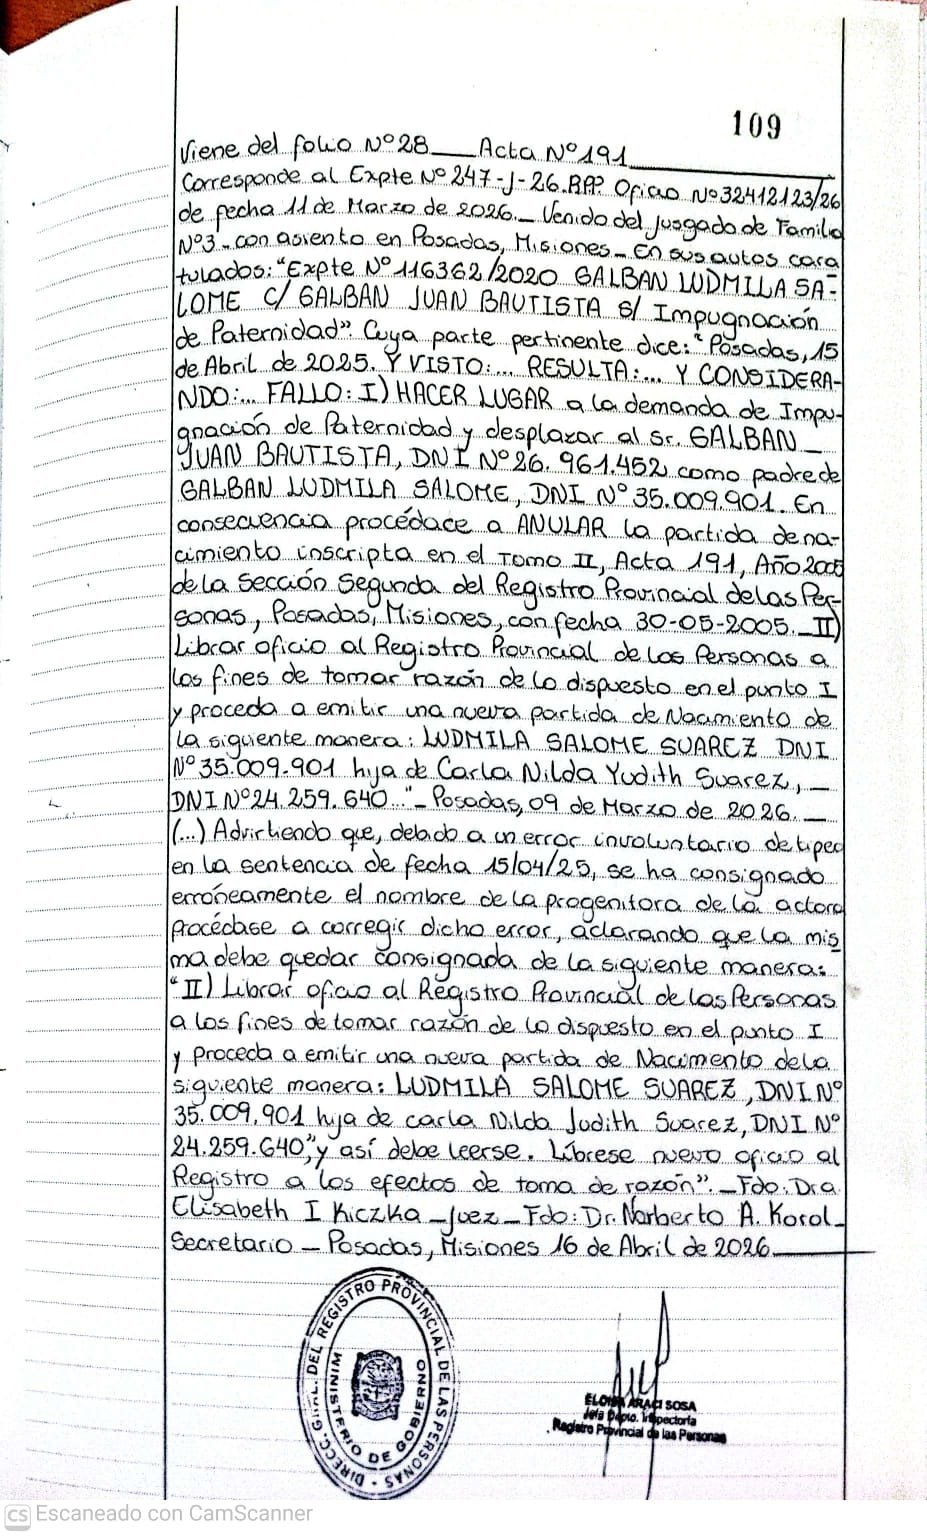 109
Viene del folio Nº28___Acta Nº191
Corresponde al Expte Nº 247-J-26.RPP. Oficio Nº32412123/26
de fecha 11 de Marzo de 2026._ Venido del Jusgado de Familia
Nº3_con asiento en Posadas, Misiones_ En sus autos cara
tulados: "Expte Nº116362/2020 GALBAN LUDMILA SA-
LOME C/ GALBAN JUAN BAUTISTA S/ Impugnación
de Paternidad". Cuya parte pertinente dice: "Posadas, 15
de Abril de 2025. Y VISTO:... RESULTA:... Y CONSIDERA-
NDO:... FALLO: I) HACER LUGAR a la demanda de Impu-
gnación de Paternidad y desplazar al Sr. GALBAN_
JUAN BAUTISTA, DNI Nº26.961.452 como padre de
GALBAN LUDMILA SALOME, DNI Nº 35.009.901. En
consecuencia procédace a ANULAR la partida de na-
cimiento inscripta en el Tomo II, Acta 191, Año 2005
de la Sección Segunda del Registro Provincial de las Per-
sonas, Posadas, Misiones, con fecha 30-05-2005._II)
Librar oficio al Registro Provincial de las Personas a
los fines de tomar razón de lo dispuesto en el punto I
y proceda a emitir una nueva partida de Nacimiento de
la siguiente manera: LUDMILA SALOME SUAREZ DNI
Nº35.009.901 hija de Carla Nilda Yudith Suarez,_
DNI Nº24.259.640..."_ Posadas, 09 de Marzo de 2026.__
(...) Advirtiendo que, debido a un error involuntario de tipeo
en la sentencia de fecha 15/04/25, se ha consignado
erróneamente el nombre de la progenitora de la actora
Procédase a corregir dicho error, aclarando que la mis
ma debe quedar consignada de la siguiente manera:
"II) Librar oficio al Registro Provincial de las Personas
a los fines de tomar razón de lo dispuesto en el punto I
y proceda a emitir una nueva partida de Nacimento de la
siguiente manera: LUDMILA SALOME SUAREZ, DNI Nº
35.009.901 hija de Carla Nilda Judith Suarez, DNI Nº
24.259.640", y así debe leerse. Líbrese nuevo oficio al
Registro a los efectos de toma de razón"._Fdo: Dra.
Elisabeth I Kiczka_Juez_Fdo: Dr. Norberto A. Korol_
Secretario_Posadas, Misiones 16 de Abril de 2026.
DIRECC. GRAL. DEL REGISTRO PROVINCIAL DE LAS PERSONAS
MINISTERIO DE GOBIERNO
ELOISA ARACI SOSA
Jefa Dpto. Inspectoria
Registro Provincial de las Personas
CS Escaneado con CamScanner